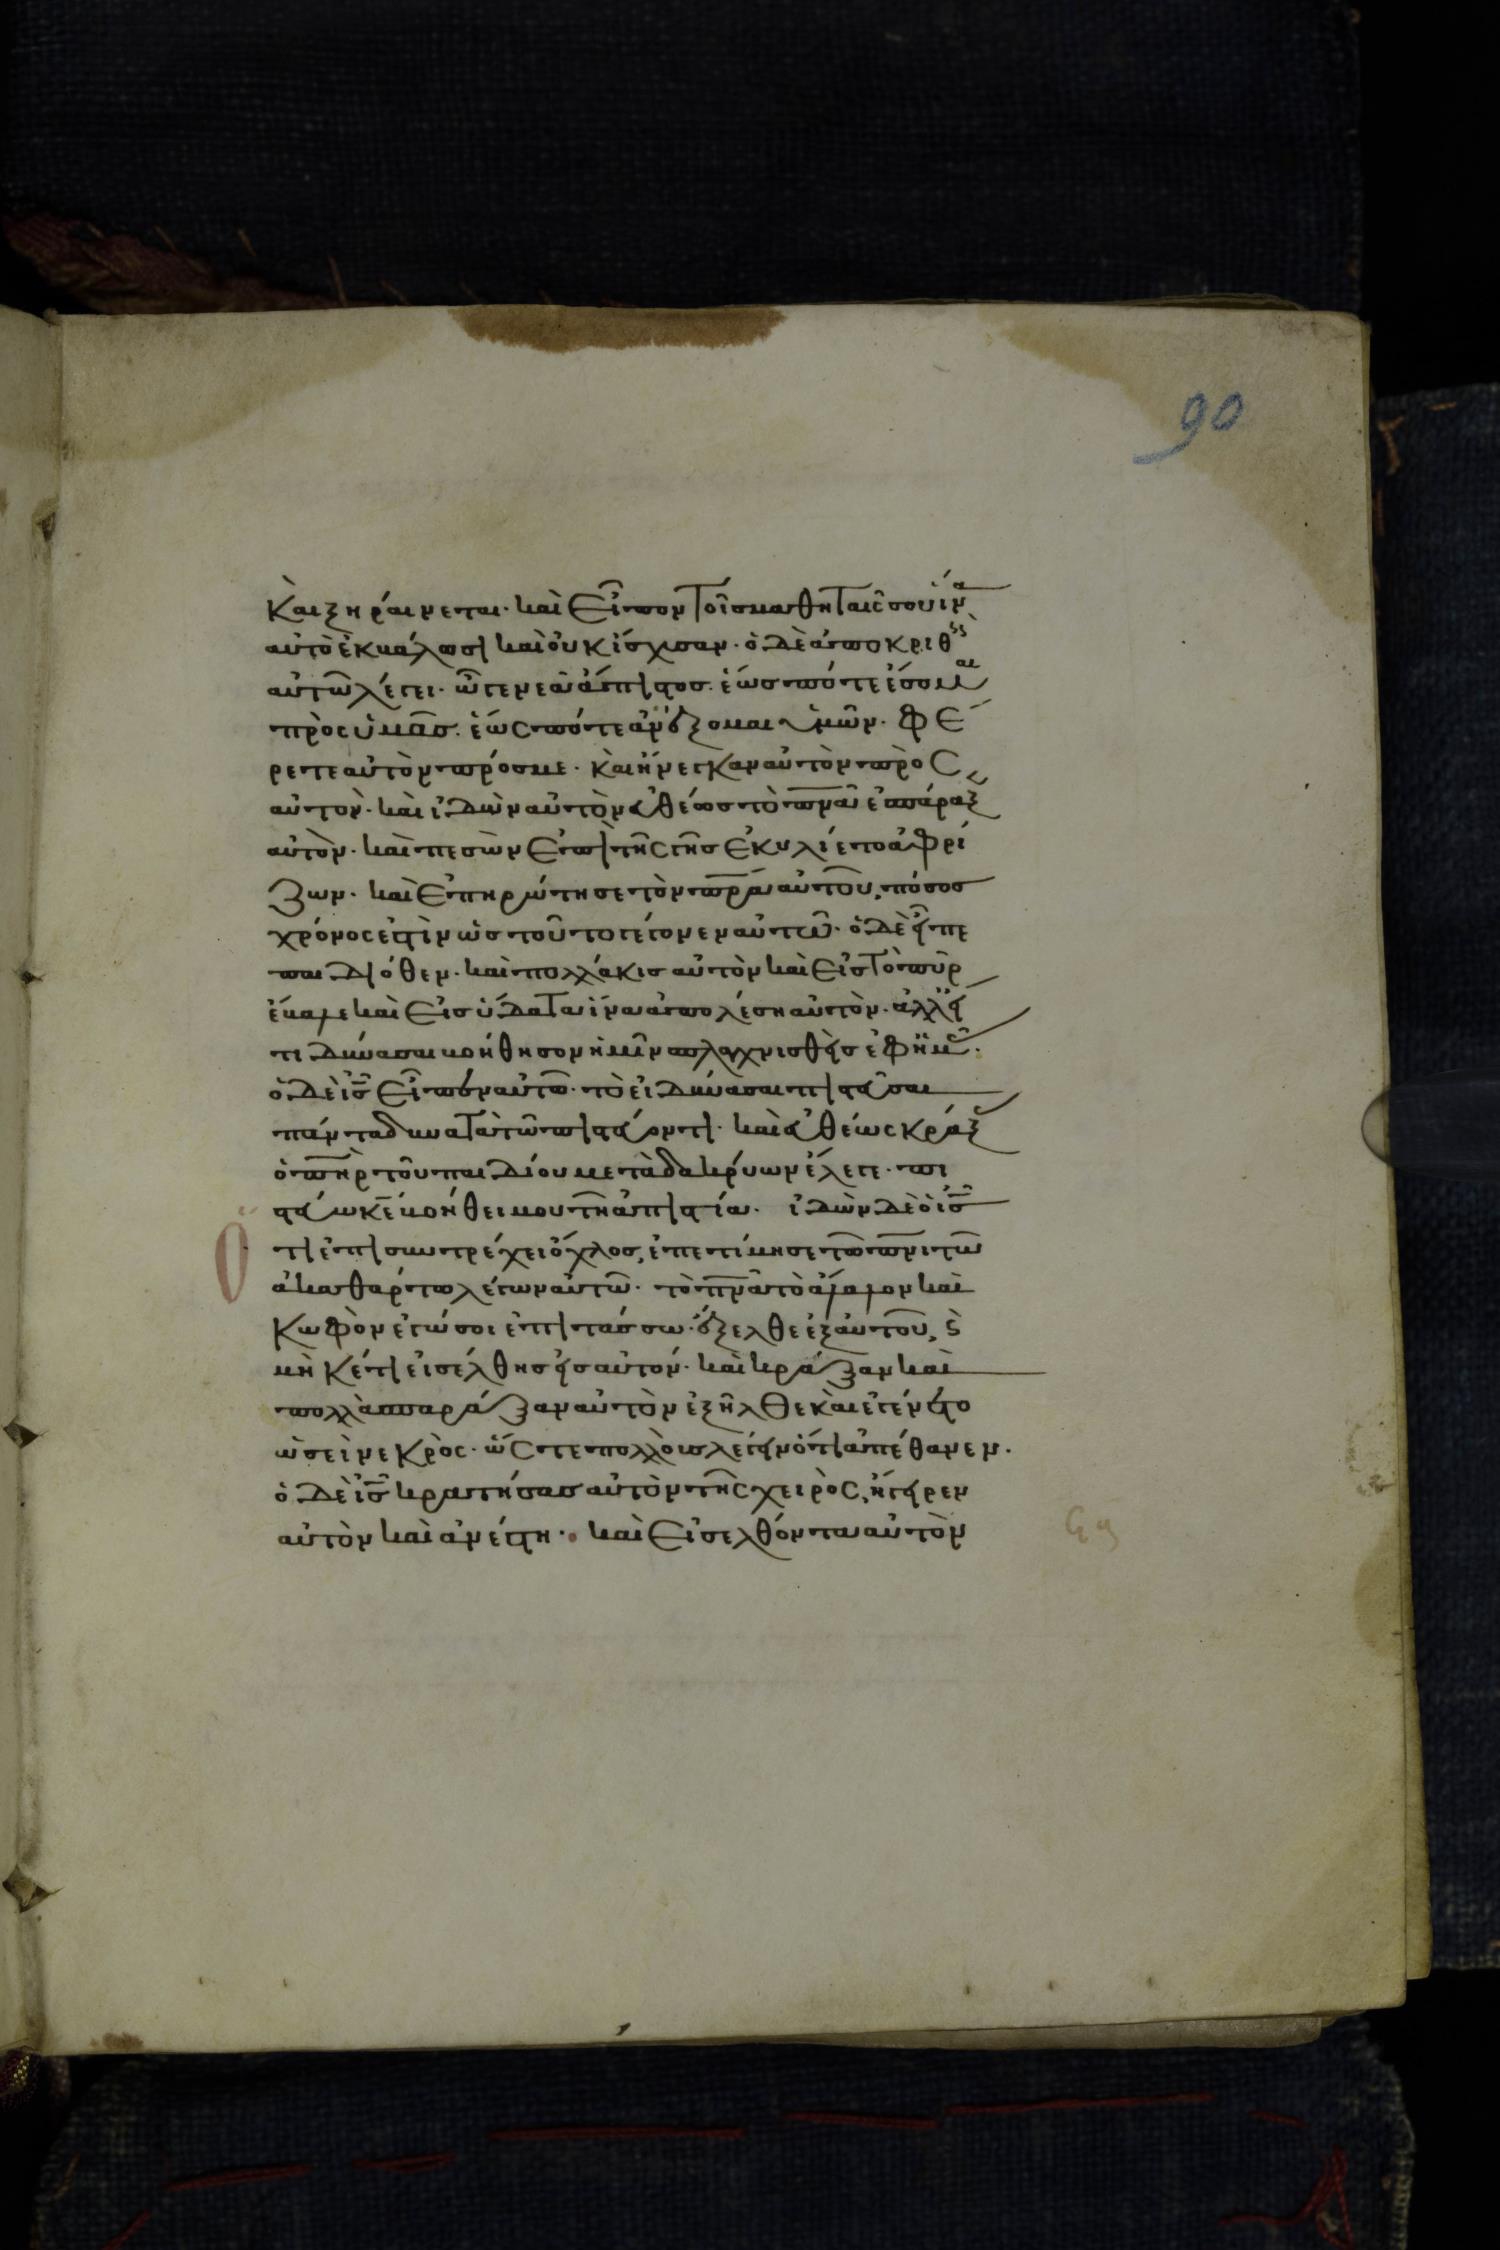 90
καὶ ξηραίνεται· καὶ εἶπον τοῖς μαθηταῖς σου ἵνα
αὐτὸ ἐκβάλωσι καὶ οὐκ ἴσχυσαν· ὁ δὲ ἀποκριθεὶς
αὐτῶ λέγει· ὦ γενεὰ ἄπιστος· ἕως πότε ἔσομαι
πρὸς ὑμᾶς· ἕως πότε ἀνέξομαι ὑμῶν· φέ
ρετε αὐτὸν πρός με· καὶ ἤνεγκαν αὐτὸν πρὸς
αὐτον· καὶ ἰδὼν αὐτὸν εὐθέως τὸ πνα ἐσπάραξεν
αὐτὸν· καὶ πεσὼν ἐπὶ τῆς γῆς ἐκυλίετο ἀφρί
ζων· καὶ ἐπηρώτησε τὸν πρα αὐτοῦ, πόσος
χρόνος ἐστὶν ὡς τοῦτο γέγονεν αὐτῶ· ὁ δὲ εἶπε
παιδιόθεν· καὶ πολλάκις αὐτὸν καὶ εἰς τὸ πῦρ
ἔβαλε καὶ εἰς ὕδατα ἵνα ἀπολέση αὐτὸν· ἀλλ εἴ
τι δύνασαι βοήθησον ἡμῖν σπλαγχνισθεὶς ἐφ ἡμᾶς·
ὁ δὲ ἰς εἶπεν αὐτῶ· τὸ εἰ δύνασαι πιστεῦσαι
πάντα δυνατὰ τῶ πιστεύοντι· καὶ εὐθέως κράξας
ὁ πηρ τοῦ παιδίου μετὰ δακρύων ἔλεγε· πι
στεύω κε βοήθει μου τῆ ἀπιστία· ἰδὼν δὲ ὁ ἰς
ὅτι ἐπισυντρέχει ὄχλος, ἐπετίμησε τῶ πνι τῶ
ἀκαθάρτω λέγων αὐτῶ· τὸ πνα τὸ ἄλαλον καὶ
κωφὸν ἐγώ σοι ἐπιτάσσω· ἔξελθε ἐξ αὐτοῦ, ϛ
μὴ κέτι εἰσέλθης εἰς αὐτόν· καὶ κράξαν καὶ
πολλὰ σπαράξαν αὐτὸν ἐξῆλθε καὶ ἐγένετο
ὡσεὶ νεκρὸς· ὥστε πολλοὺς λέγειν ὅτι ἀπέθανεν·
ὁ δὲ ἰς κρατήσας αὐτὸν τῆς χειρὸς, ἤγειρεν
αὐτὸν καὶ ἀνέστη· καὶ εἰσελθόντα αὐτὸν